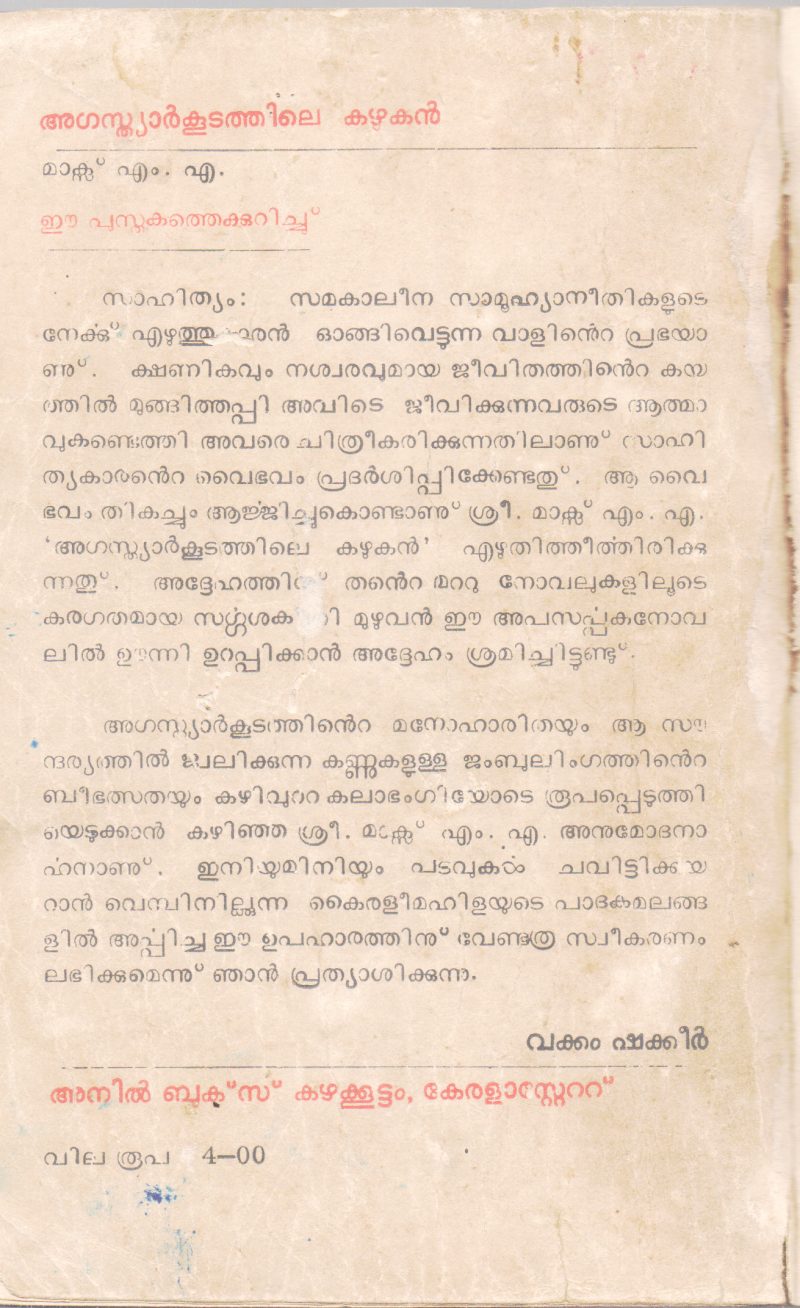 അഗസ്ത്യാർകൂടത്തിലെ കഴുകൻ
മാക്സ് എം. എ.
ഈ പുസ്തകത്തെക്കുറിച്ച്
സാഹിത്യം: സമകാലീന സാമൂഹ്യാനീതികളുടെ
നേൎക്കു് എഴുത്തുകാരൻ ഓങ്ങിവെട്ടുന്ന വാളിൻെറ പ്രഭയാ
ണു്. ക്ഷണികവും നശ്വരവുമായ ജീവിതത്തിൻെറ കയ
ത്തിൽ മുങ്ങിത്തപ്പി അവിടെ ജീവിക്കുന്നവരുടെ ആത്മാ
വുകണ്ടെത്തി അവരെ ചിത്രീകരിക്കുന്നതിലാണു് സാഹി
ത്യകാരൻെറ വൈഭവം പ്രദർശിപ്പിക്കേണ്ടതു്. ആ വൈ
ഭവം തികച്ചും ആൎജ്ജിച്ചുകൊണ്ടാണു് ശ്രീ. മാക്സ് എം. എ.
‘അഗസ്ത്യാർകൂടത്തിലെ കഴുകൻ’ എഴുതിത്തീൎത്തിരിക്കു
ന്നതു്. അദ്ദേഹത്തിനു് തൻെറ മററു നോവലുകളിലൂടെ
കരഗതമായ സൎഗ്ഗശക്തി മുഴുവൻ ഈ അപസൎപ്പകനോവ
ലിൽ ഊന്നി ഉറപ്പിക്കാൻ അദ്ദേഹം ശ്രമിച്ചിട്ടുണ്ടു്.
അഗസ്ത്യാർകൂടത്തിൻെറ മനോഹാരിതയും ആ സൗ
ന്ദര്യത്തിൽ ജ്വലിക്കുന്ന കണ്ണുകളുള്ള ജംബുലിംഗത്തിൻെറ
ബീഭത്സതയും കഴിവുററ കലാഭംഗിയോടെ രൂപപ്പെടുത്തി
യെടുക്കാൻ കഴിഞ്ഞ ശ്രീ. മാക്സ് എം. എ. അനുമോദനാ
ൎഹനാണു്. ഇനിയുമിനിയും പടവുകൾ ചവിട്ടിക്കയ
റാൻ വെമ്പിനില്ക്കുന്ന കൈരളീമഹിളയുടെ പാദകമലങ്ങ
ളിൽ അൎപ്പിച്ച ഈ ഉപഹാരത്തിനു് വേണ്ടത്ര സ്വീകരണം
ലഭിക്കുമെന്നു് ഞാൻ പ്രത്യാശിക്കുന്നു.
വക്കം ഷക്കീർ
അനിൽ ബുക്സ് കഴക്കൂട്ടം, കേരളാസ്റ്റേററ്
വില രൂപ 4—00